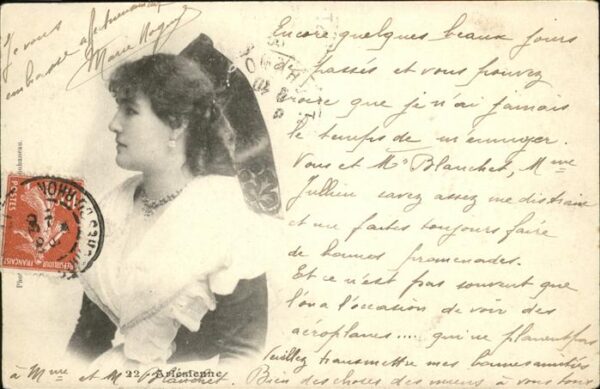 Je vous
embrasse affectueusement
Marie
Encore quelques beaux jours
de passés et vous pouvez
croire que je n'ai jamais
le temps de m'ennuyer.
Vous et Mr Blanchet, Mme
Jullien savez assez me distraire
et me faites toujours faire
de bonnes promenades.
Et ce n'est pas souvent que
l'on a l'occasion de voir des
aéroplanes..... qui ne planent pas
Veuillez transmettre mes bonnes amitiés
à Mme et Mr Blanchet. Bien des choses des miens à vous tous
22. - Arlésienne
REPUBLIQUE FRANÇAISE
POSTES